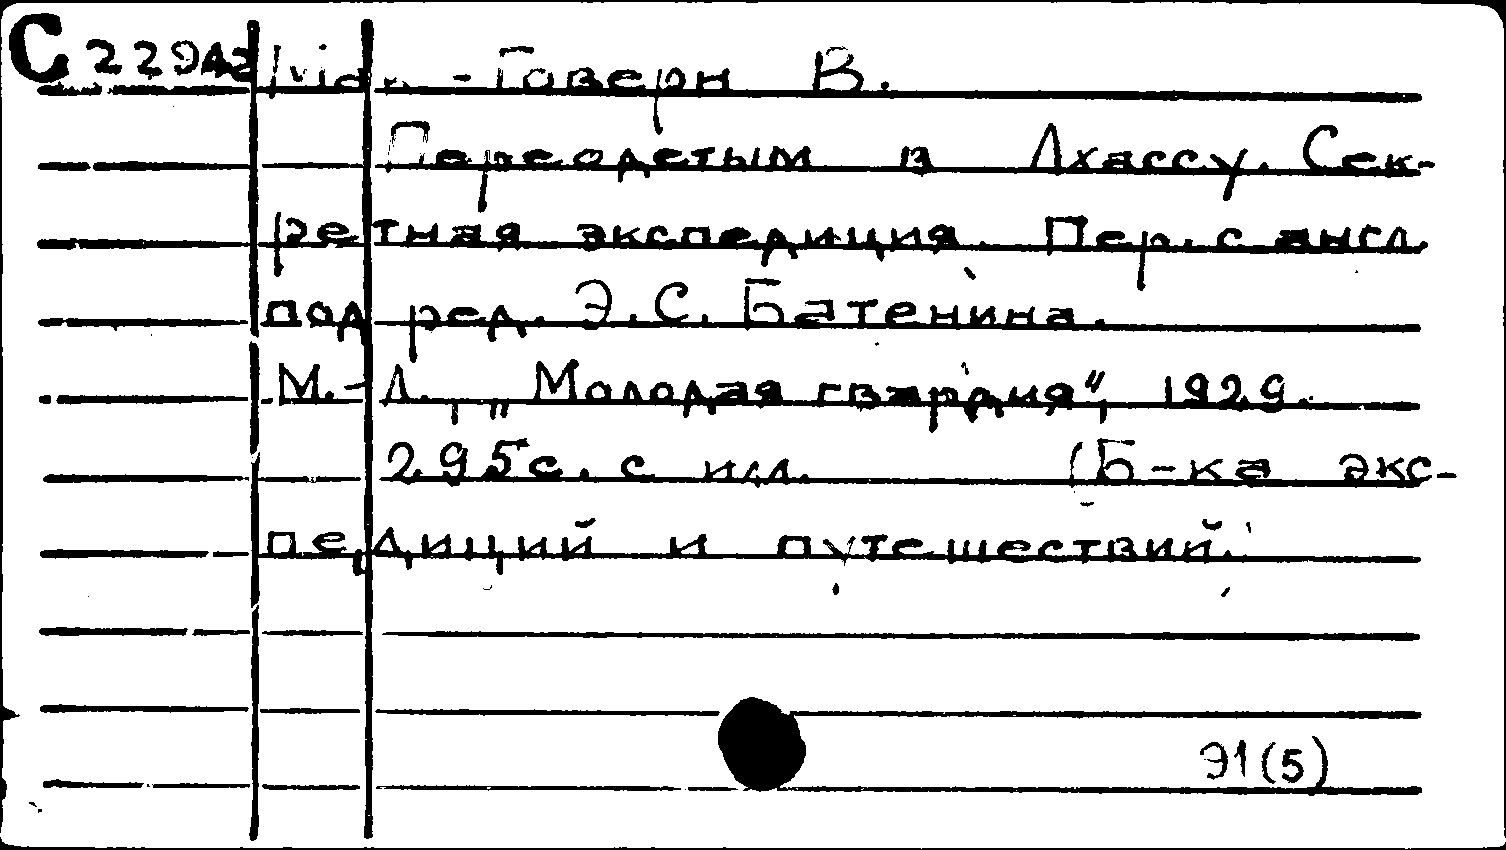 С 22942 Мак-Говерн В.
Переодетым в Лхассу. Сек-
ретная экспедиция. Пер. с англ.
под ред. Э.С. Батенина.
М.-Л., „Молодая гвардия", 1929.
295с. с илл. (Б-ка экс-
педиций и путешествий.
91(5)